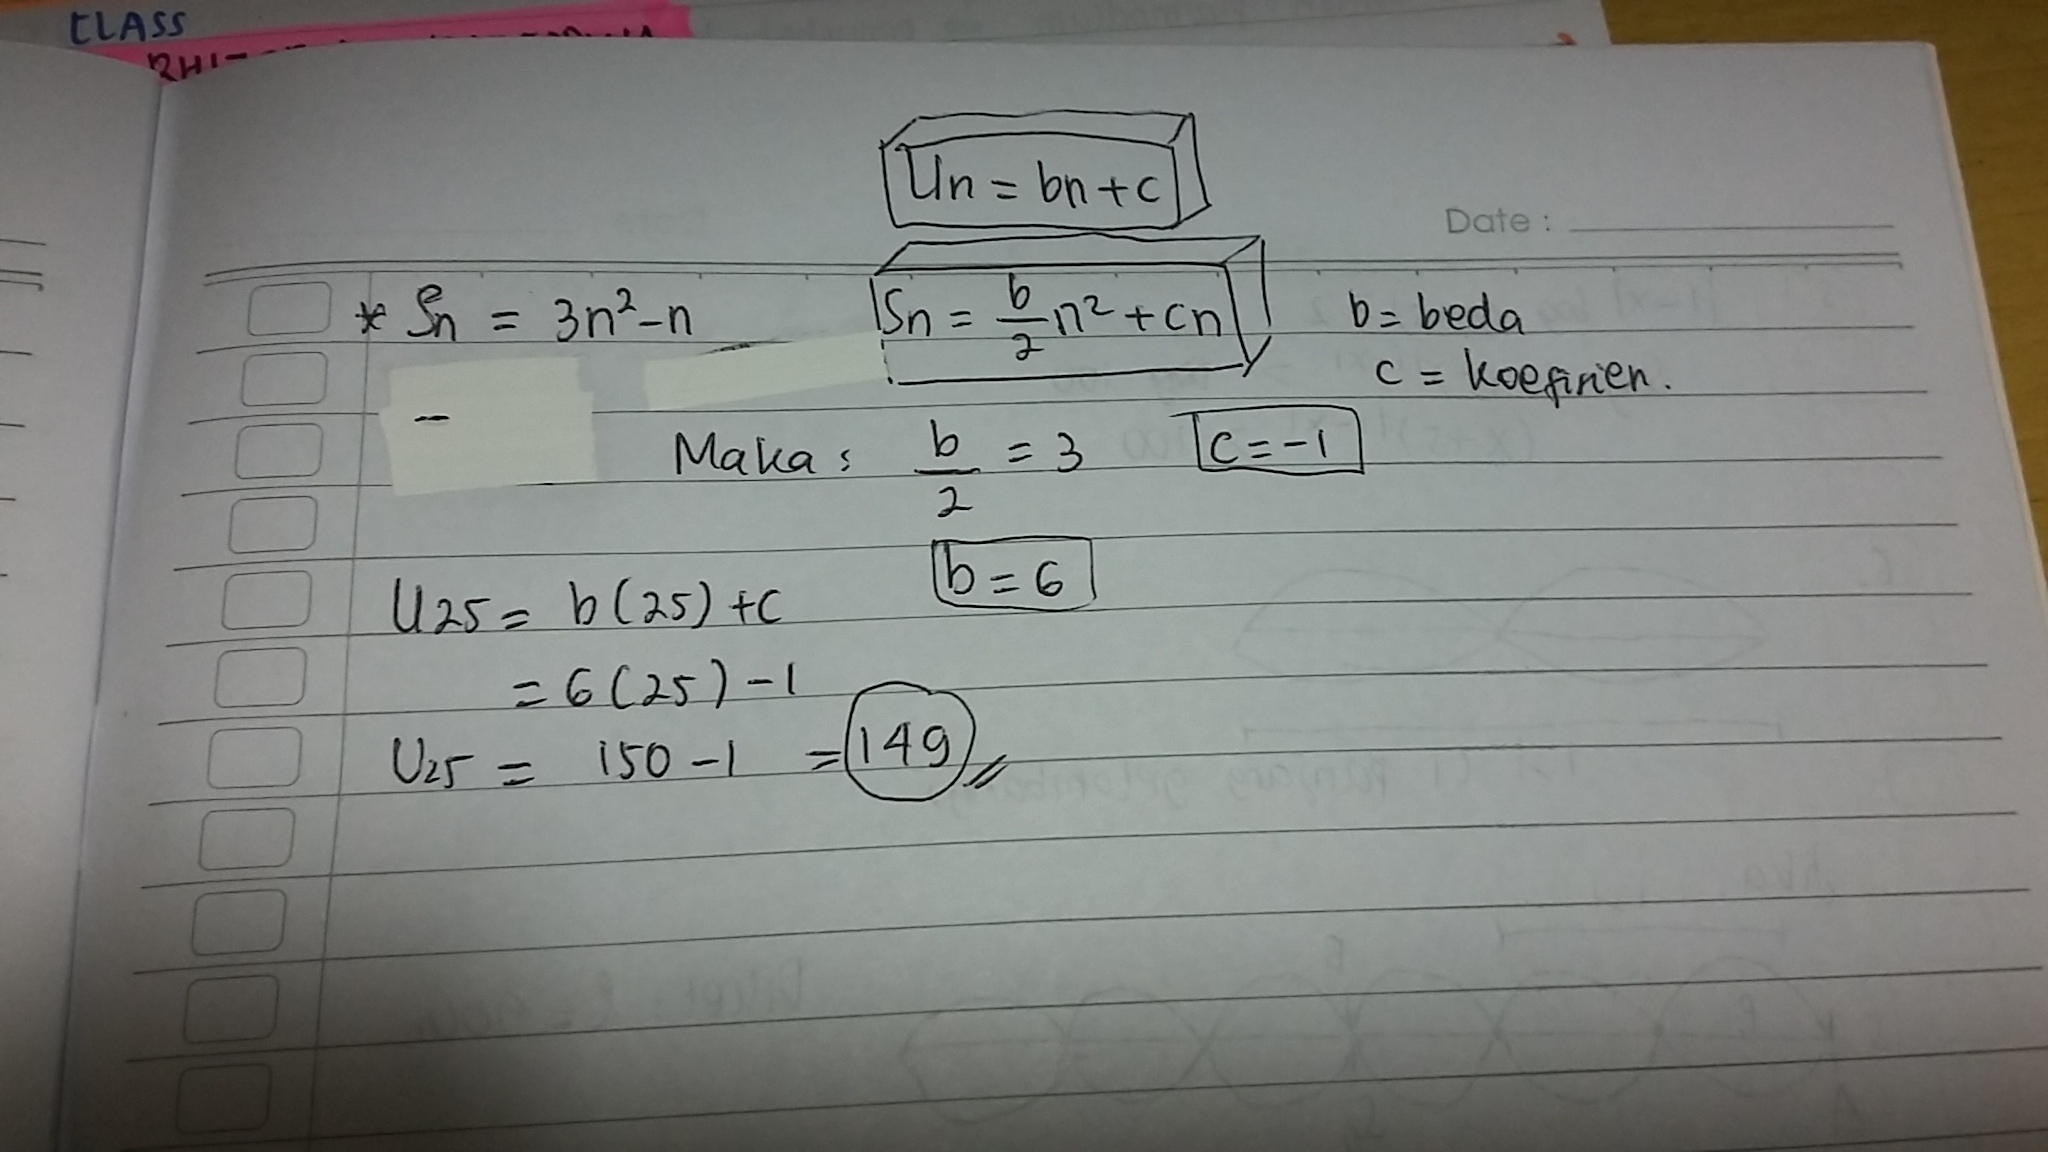 CLASS
Un = bn + c
Date :
* Sn = 3n² - n
Sn = b/2 n² + cn
b = beda
c = koefisien.
Maka : b/2 = 3
c = -1
b = 6
U25 = b(25) + c
= 6(25) - 1
U25 = 150 - 1 = 149